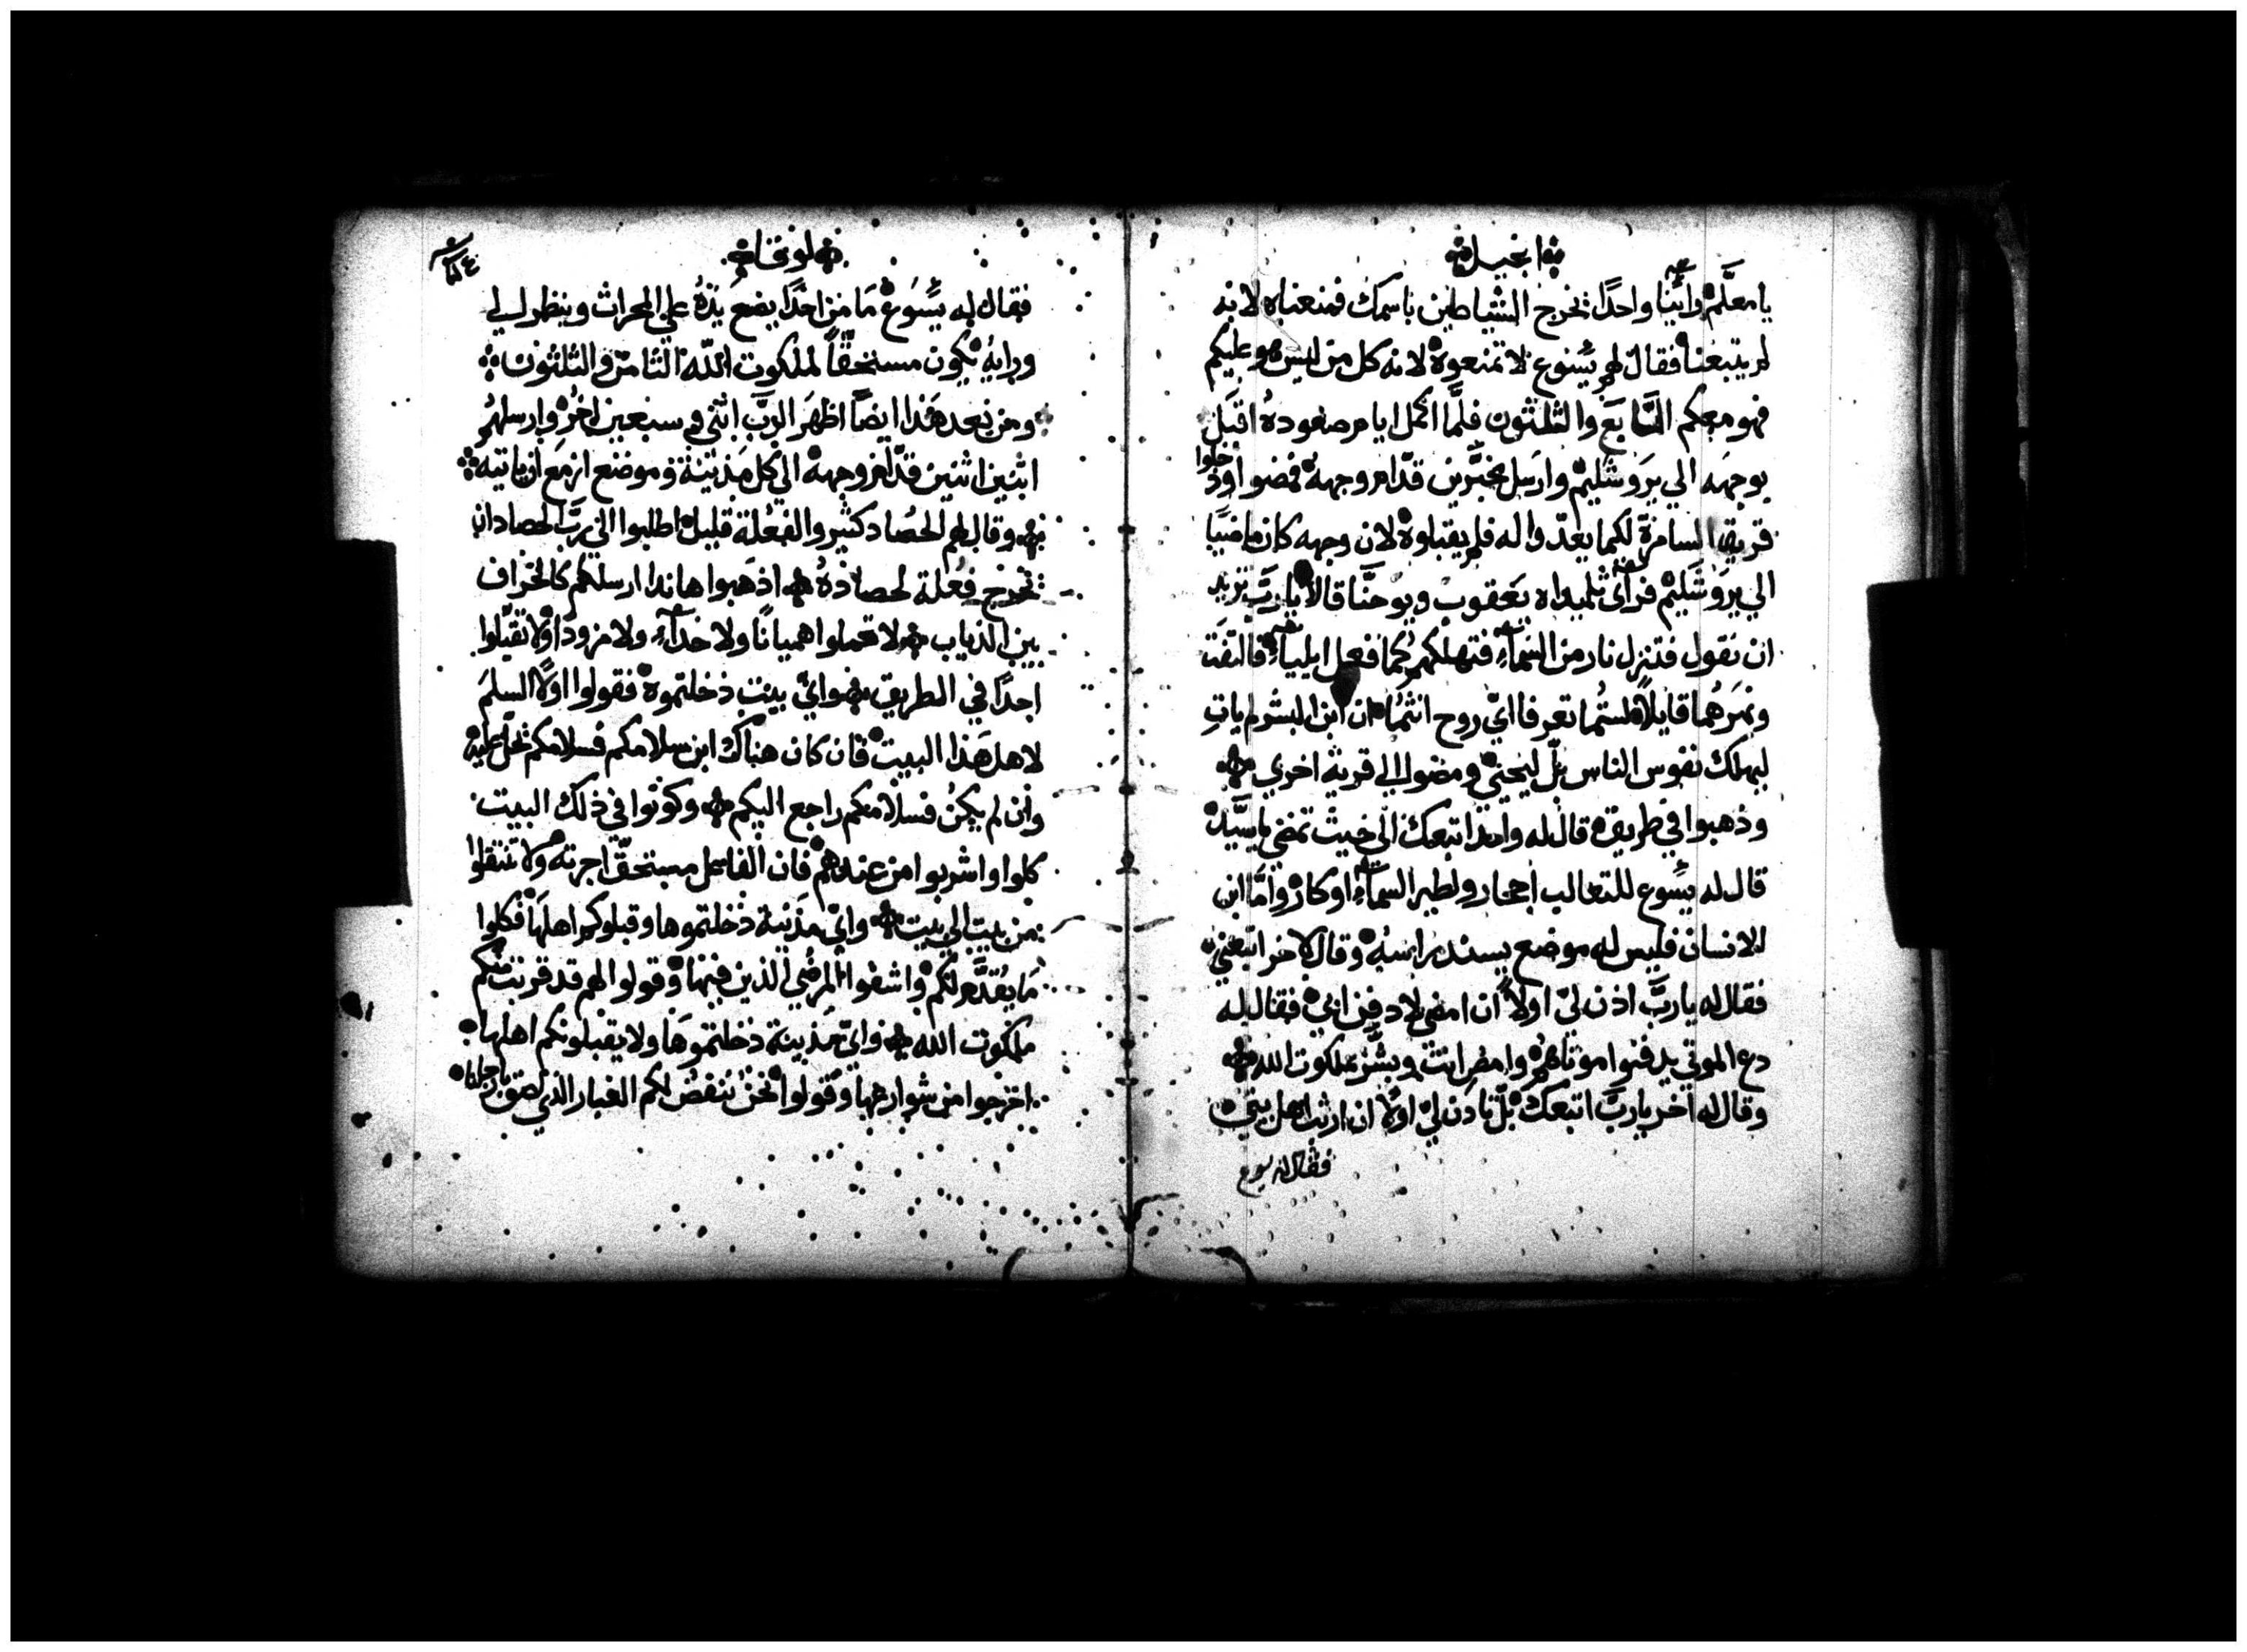 انجيل
يا معلّم رائينا واحدًا يخرج الشياطين باسمك فمنعناه لانه
لم يتبعنا فقال لهم يسوع لا تمنعوه لانه كل من ليس هو عليكم
فهو معكم السابع والثلثون فلمّا اكمل ايام صعوده اقبل
بوجهه الي يروشليم وارسل مخبّرين قدّام وجهه فمضوا ودخلوا
قرية السامرة لكيما يعدّوا له فلم يقبلوه لان وجهه كان ماضيًا
الي يروشليم فرآى تلميذاه يعقوب ويوحنّا قالا يا ربّ تريد
ان نقول فتنزل نار من السمآءِ فتهلكهم كما فعل ايلياء فالتفت
ونهرهما قايلاً لستُما تعرفا ايّ روح انتُما ان ابن البشر لم ياتِ
ليهلك نفوس الناس بل ليحيي ومضوا الي قرية اخري
وذهبوا في طريقه قال له واحد اتبعك الي حيث تمضي يا سيّد
قال له يسوع للثعالب اجحار ولطير السمآءِ اوكار وامّا ابن
الانسان فليس له موضع يسند راسه وقال لاخر اتبعني
فقال له يا ربّ اذن لي اولاً ان امضي لادفن ابي فقال له
دع الموتي يدفنوا موتاهم وامض انت وبشّر بملكوت الله
وقال له اخر يا ربّ اتبعك بل تاذن لي اولًا ان ارتب اهل بيتي
فقال له يسوع
لوقا
فقال له يسوع ما من احدًا يضع يده علي المحراث وينظر الي
ورايه يكون مستحقًا لملكوت الله الثامن والثلثون
ومن بعد هذا ايضًا اظهر الربّ اثني و سبعين اخر وارسلهم
اثنين اثنين قدّام وجهه الي كل مدينة وموضع ازمع ان ياتيه
وقال لهم الحصاد كثير والفعلة قليل اطلبوا الي ربّ الحصاد ان
تخرج فعلة لحصاده اذهبوا هاندا ارسلكم كالخراف
بين الذياب لا تحملوا هميانًا ولا حذآءِ ولا مزودًا ولا تقبّلوا
احدًا في الطريق وايّ بيت دخلتموه فقولوا اولًا السلم
لاهل هذا البيت فان كان هناك ابن سلامكم فسلامكم تحلّ عليه
وان لم يكن فسلامكم راجع اليكم وكونوا في ذلك البيت
كلوا واشربوا من عندهم فان الفاعل مستحقّ اجرته ولا تنتقلوا
من بيت الي بيت وايّ مدينة دخلتموها وقبلوكم اهلها فكلوا
ما يُقدّم لكم واشفوا المرضي الذين فيها وقولوا لهم قد قربت منكم
ملكوت الله وايّ مدينة دخلتموها ولا يقبلونكم اهلها
اخرجوا من شوارعها وقولوا نحن ننفض لكم الغبار الذي لصق بارجلنا